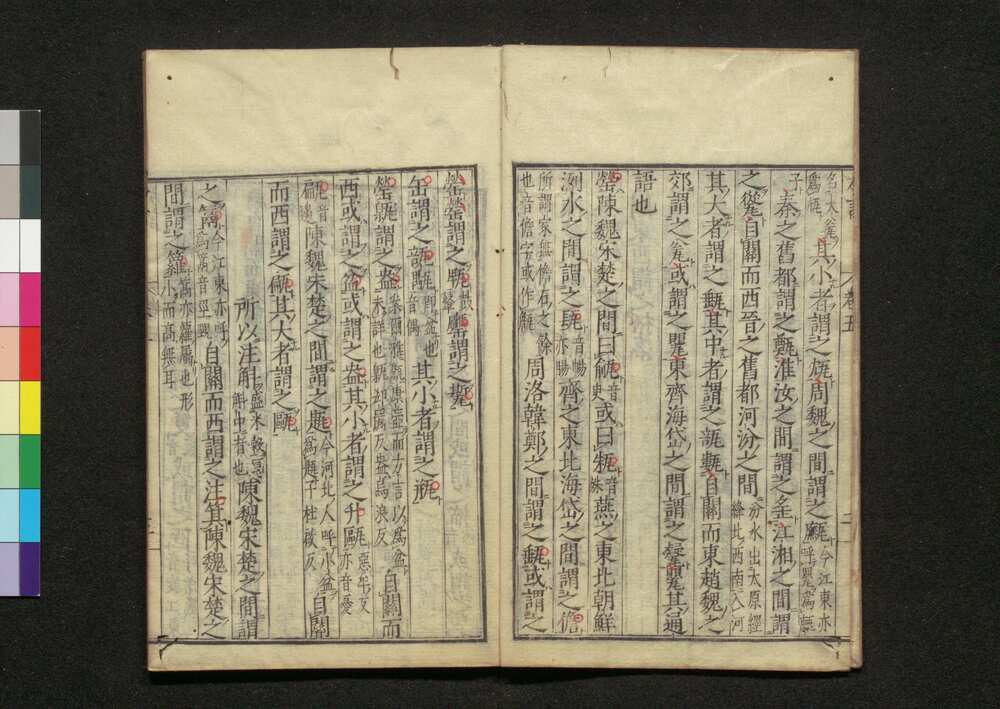 其小者謂之瓶周魏之間謂之甒今江東亦呼甖為甒子
秦之舊都謂之甀淮汝之間謂之䍃江湘之間謂
之自關而西晉之舊都河汾之間汾水出太原經絳北西南入河
其大者謂之甀其中者謂之瓿甊自關而東趙魏之
郊謂之瓮或謂之甖東齊海岱之間謂之甖其通
語也
罃陳魏宋楚之間曰㼶音臾或曰㼡音殊燕之東北朝鮮
洌水之間謂之瓺音暢亦腸齊之東北海岱之間謂之儋
所謂家無儋石之餘也音儋字或作甔周洛韓鄭之間謂之甀或謂之
罃罃謂之甈謂之
缶謂之瓿甊即盆也音偶其小者謂之瓶
罃甈謂之盎案爾雅甈康壺而方言以為盆未詳也甈卻罽反盎烏浪反自關而
西或謂之盆或謂之盎其小者謂之升甌惡牟反亦音憂
甂音邊陳魏宋楚之間謂之題今河北人呼小盆為題子杜啟反自關
而西謂之甂其大者謂之甌
所以注斛盛米穀寫斛中者也陳魏宋楚之間謂
之篙今江東亦呼為篙音巫覡自關而西謂之注箕陳魏宋楚之
間謂之籮篙亦籮屬也形小而高無耳